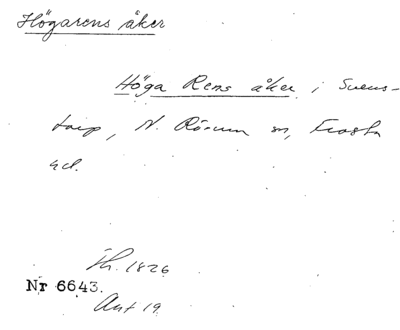 Högarens åker
Höga Rens åker i Svens-
torp, N. Rörum sn, Frosta
hd.
Th. 1826
Nr 6643.
Ant 19